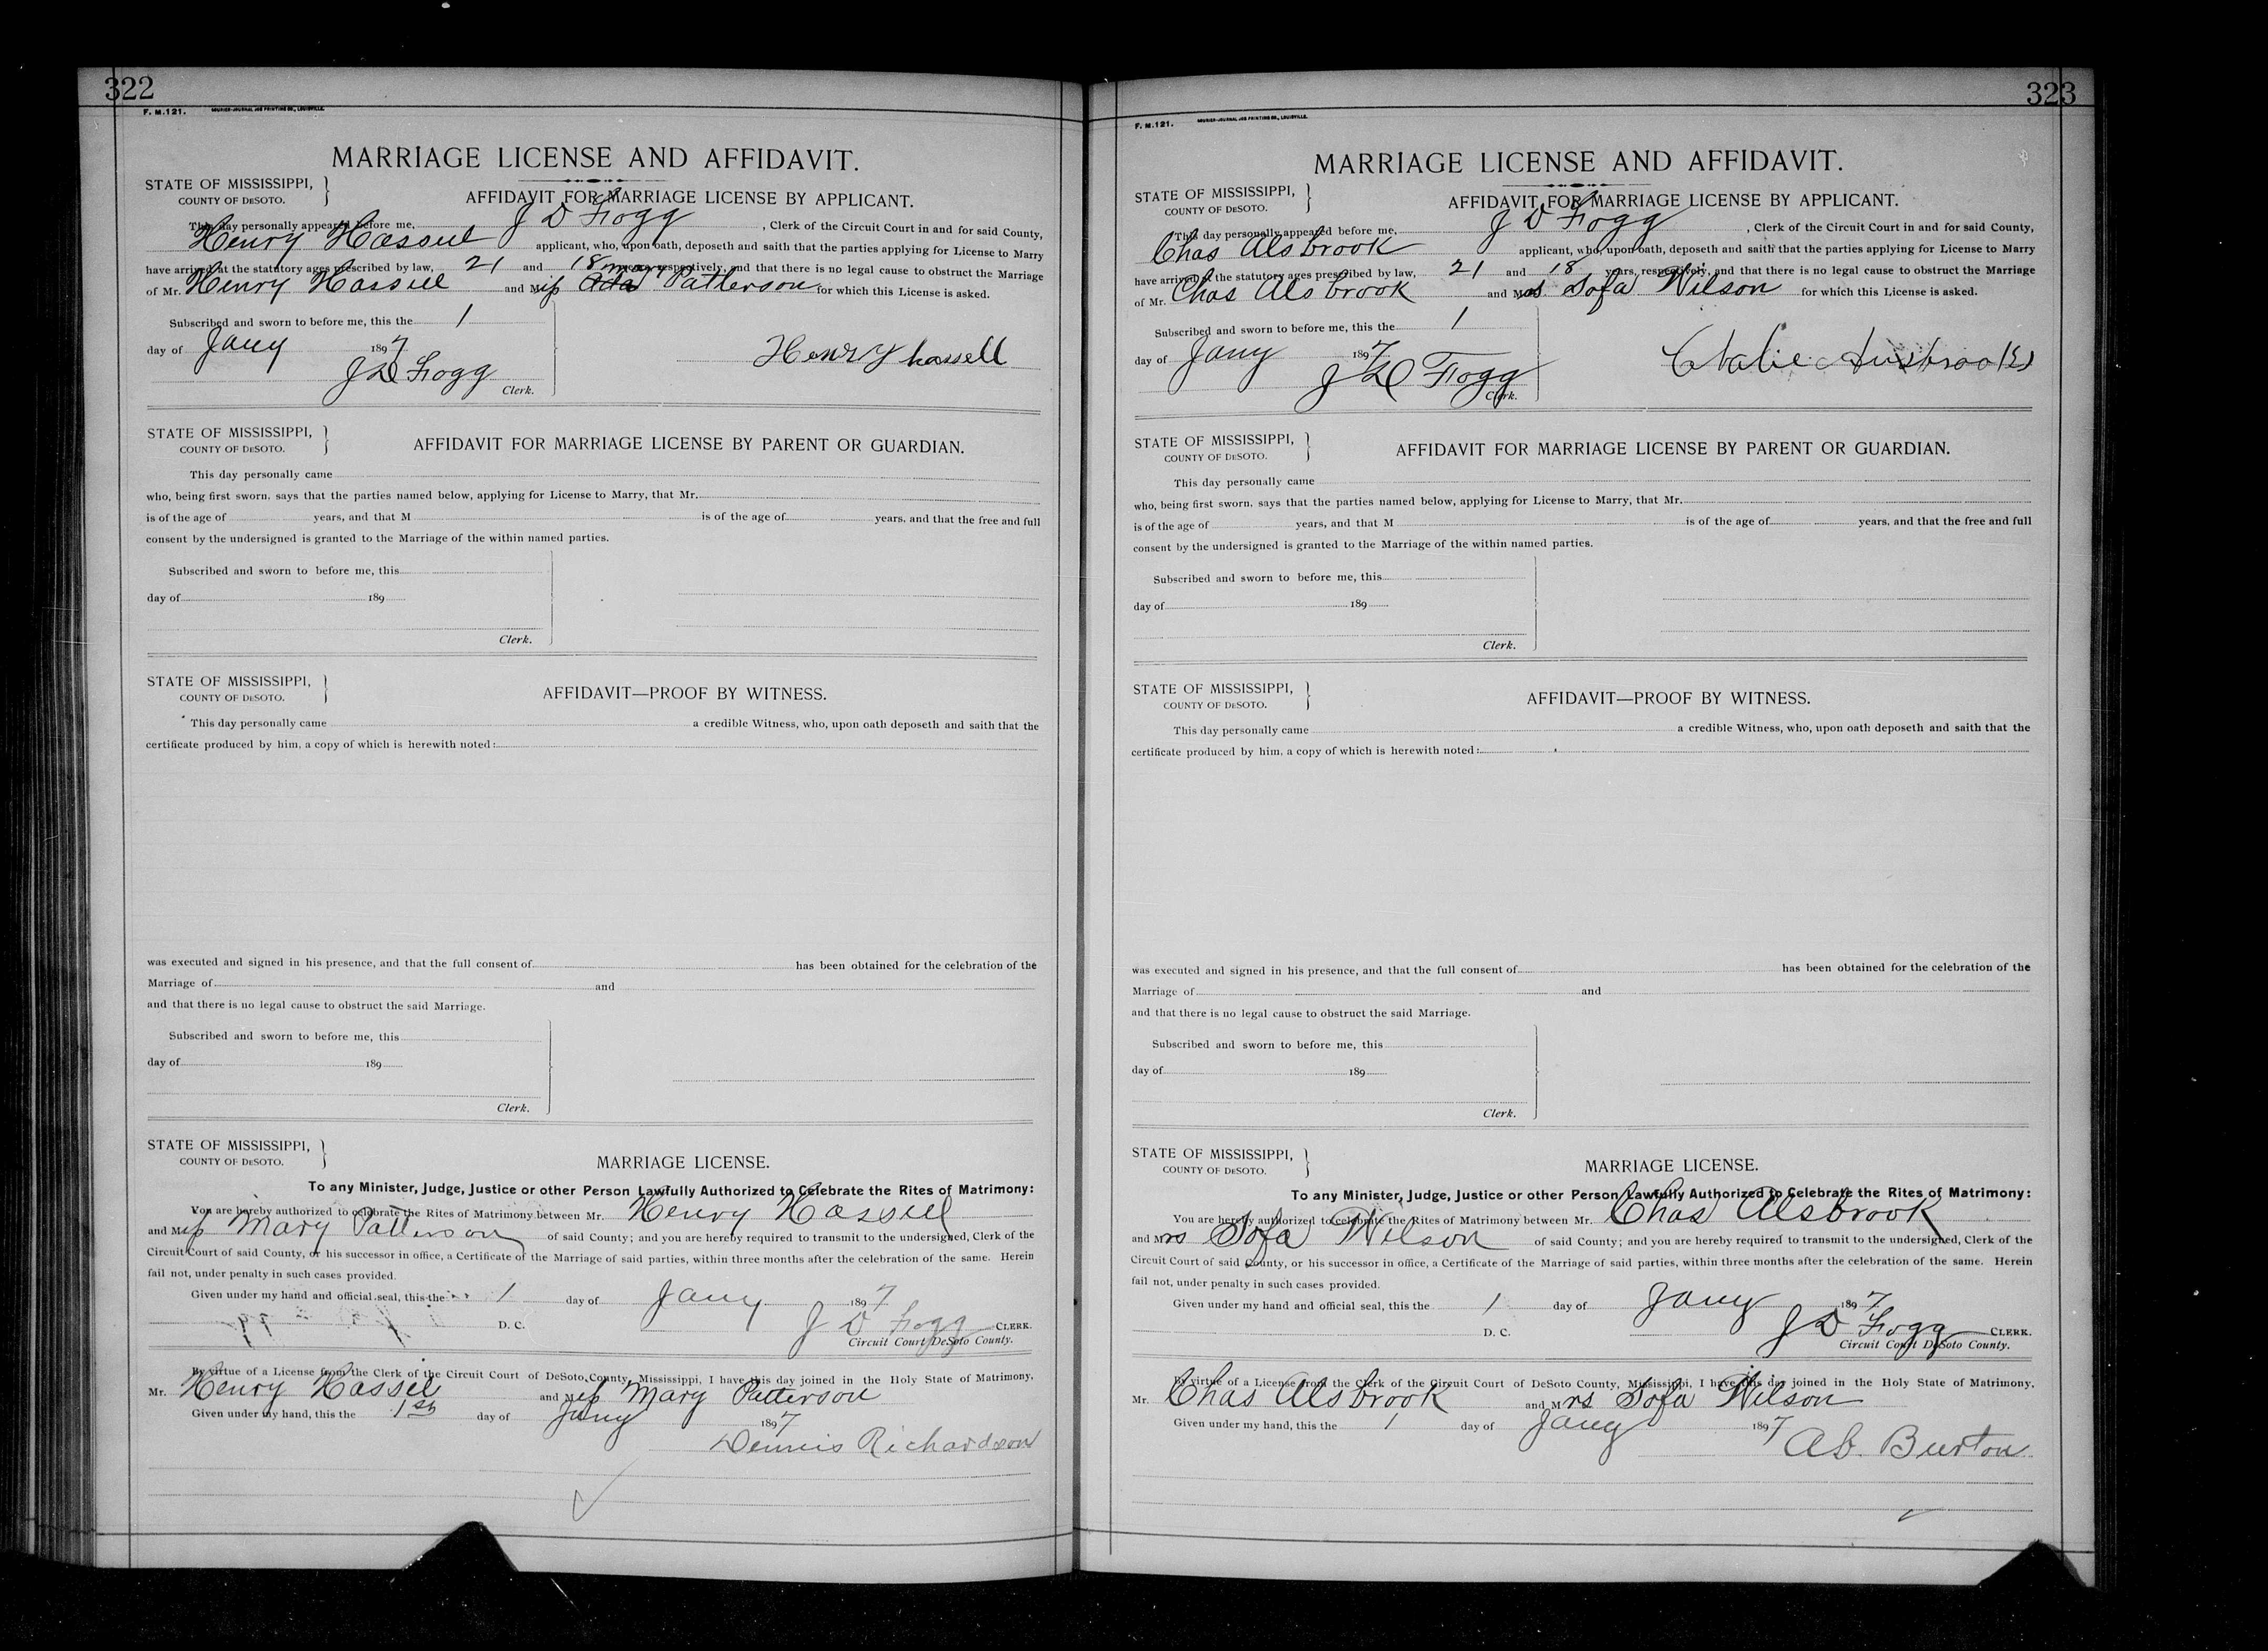 322
F. M. 121. COURIER-JOURNAL JOB PRINTING CO., LOUISVILLE.
MARRIAGE LICENSE AND AFFIDAVIT.
STATE OF MISSISSIPPI,
COUNTY OF DESOTO.
AFFIDAVIT FOR MARRIAGE LICENSE BY APPLICANT.
This day personally appeared before me, J D Fogg, Clerk of the Circuit Court in and for said County,
Henry Hassel applicant, who, upon oath, deposeth and saith that the parties applying for License to Marry
have arrived at the statutory ages prescribed by law, 21 and 18 years, respectively, and that there is no legal cause to obstruct the Marriage
of Mr. Henry Hassel and Miss Mary Patterson for which this License is asked.
Subscribed and sworn to before me, this the 1
day of Jany 1897
J D Fogg
Clerk.
Henry hassell
STATE OF MISSISSIPPI,
COUNTY OF DESOTO.
AFFIDAVIT FOR MARRIAGE LICENSE BY PARENT OR GUARDIAN.
This day personally came
who, being first sworn, says that the parties named below, applying for License to Marry, that Mr.
is of the age of years, and that M is of the age of years, and that the free and full
consent by the undersigned is granted to the Marriage of the within named parties.
Subscribed and sworn to before me, this
day of 189
Clerk.
STATE OF MISSISSIPPI,
COUNTY OF DESOTO.
AFFIDAVIT—PROOF BY WITNESS.
This day personally came a credible Witness, who, upon oath deposeth and saith that the
certificate produced by him, a copy of which is herewith noted:
was executed and signed in his presence, and that the full consent of has been obtained for the celebration of the
Marriage of and
and that there is no legal cause to obstruct the said Marriage.
Subscribed and sworn to before me, this
day of 189
Clerk.
STATE OF MISSISSIPPI,
COUNTY OF DESOTO.
MARRIAGE LICENSE.
To any Minister, Judge, Justice or other Person Lawfully Authorized to Celebrate the Rites of Matrimony:
You are hereby authorized to celebrate the Rites of Matrimony between Mr. Henry Hassel
and Miss Mary Patterson of said County; and you are hereby required to transmit to the undersigned, Clerk of the
Circuit Court of said County, or his successor in office, a Certificate of the Marriage of said parties, within three months after the celebration of the same. Herein
fail not, under penalty in such cases provided.
Given under my hand and official seal, this the 1 day of Jany 1897
D. C. J D Fogg CLERK.
Circuit Court DeSoto County.
By virtue of a License from the Clerk of the Circuit Court of DeSoto County, Mississippi, I have this day joined in the Holy State of Matrimony,
Mr. Henry Hassel and Miss Mary Patterson
Given under my hand, this the 1st day of Jany 1897
Dennis Richardson
323
F. M. 121. COURIER-JOURNAL JOB PRINTING CO., LOUISVILLE.
MARRIAGE LICENSE AND AFFIDAVIT.
STATE OF MISSISSIPPI,
COUNTY OF DESOTO.
AFFIDAVIT FOR MARRIAGE LICENSE BY APPLICANT.
This day personally appeared before me, J D Fogg, Clerk of the Circuit Court in and for said County,
Chas Alsbrook applicant, who, upon oath, deposeth and saith that the parties applying for License to Marry
have arrived at the statutory ages prescribed by law, 21 and 18 years, respectively, and that there is no legal cause to obstruct the Marriage
of Mr. Chas Alsbrook and Mrs Sofa Wilson for which this License is asked.
Subscribed and sworn to before me, this the 1
day of Jany 1897
J D Fogg
Clerk.
STATE OF MISSISSIPPI,
COUNTY OF DESOTO.
AFFIDAVIT FOR MARRIAGE LICENSE BY PARENT OR GUARDIAN.
This day personally came
who, being first sworn, says that the parties named below, applying for License to Marry, that Mr.
is of the age of years, and that M is of the age of years, and that the free and full
consent by the undersigned is granted to the Marriage of the within named parties.
Subscribed and sworn to before me, this
day of 189
Clerk.
STATE OF MISSISSIPPI,
COUNTY OF DESOTO.
AFFIDAVIT—PROOF BY WITNESS.
This day personally came a credible Witness, who, upon oath deposeth and saith that the
certificate produced by him, a copy of which is herewith noted:
was executed and signed in his presence, and that the full consent of has been obtained for the celebration of the
Marriage of and
and that there is no legal cause to obstruct the said Marriage.
Subscribed and sworn to before me, this
day of 189
Clerk.
STATE OF MISSISSIPPI,
COUNTY OF DESOTO.
MARRIAGE LICENSE.
To any Minister, Judge, Justice or other Person Lawfully Authorized to Celebrate the Rites of Matrimony:
You are hereby authorized to celebrate the Rites of Matrimony between Mr. Chas Alsbrook
and Mrs Sofa Wilson of said County; and you are hereby required to transmit to the undersigned, Clerk of the
Circuit Court of said County, or his successor in office, a Certificate of the Marriage of said parties, within three months after the celebration of the same. Herein
fail not, under penalty in such cases provided.
Given under my hand and official seal, this the 1 day of Jany 1897
D. C. J D Fogg CLERK.
Circuit Court DeSoto County.
By virtue of a License from the Clerk of the Circuit Court of DeSoto County, Mississippi, I have this day joined in the Holy State of Matrimony,
Mr. Chas Alsbrook and Mrs Sofa Wilson
Given under my hand, this the 1 day of Jany 1897
Ab. Burton